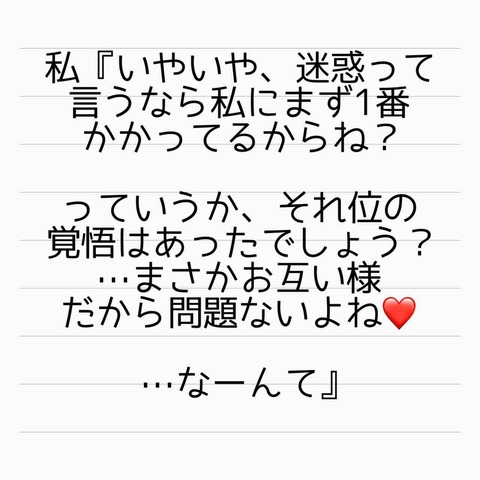 私『いやいや、迷惑って
言うなら私にまず1番
かかってるからね？
っていうか、それ位の
覚悟はあったでしょう？
…まさかお互い様
だから問題ないよね❤️
…なーんて』